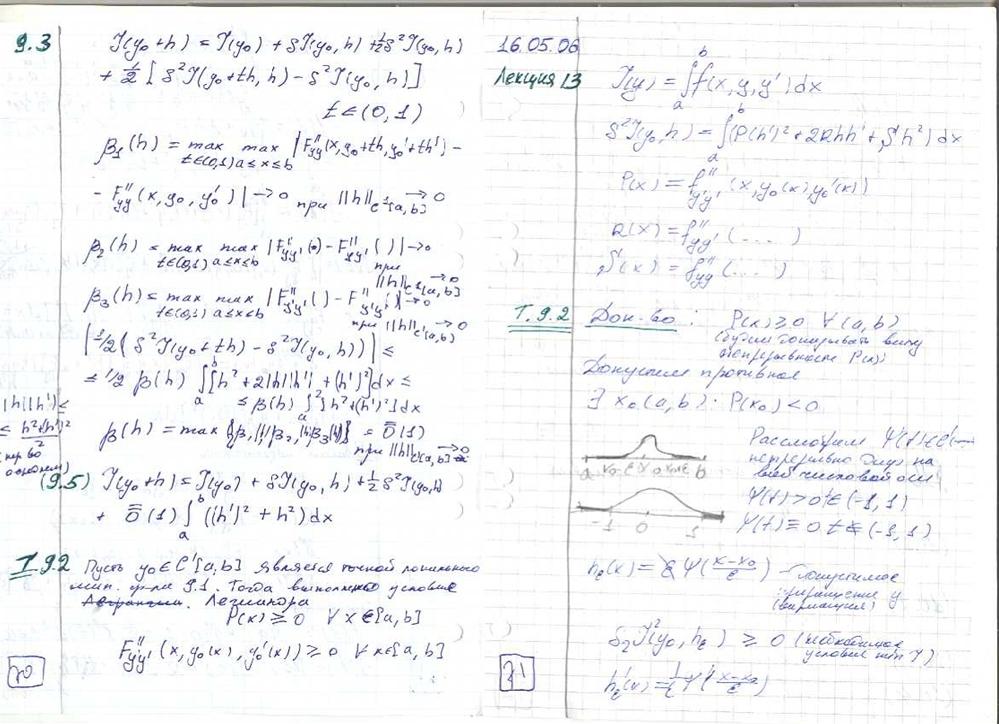 9.3 J(y₀+h) = J(y₀) + δJ(y₀,h) + ½δ²J(y₀,h)
+ ½ [δ²J(y₀+th, h) - δ²J(y₀,h)]
t∈(0,1)
β₁(h) = max max |F''yy(x,y₀+th,y₀'+th') -
t∈(0,1) a≤x≤b
- F''yy(x,y₀,y₀')| → 0 при ||h||c¹[a,b] → 0
β₂(h) = max max |F''yy'(·) - F''yy'( )| → 0
t∈(0,1) a≤x≤b при ||h||c¹[a,b] → 0
β₃(h) = max max |F''y'y'( ) - F''y'y'( )| → 0
t∈(0,1) a≤x≤b при ||h||c¹[a,b] → 0
|½(δ²J(y₀+th) - δ²J(y₀,h))| ≤
≤ ½ β(h) ∫ₐᵇ[h² + 2|h||h'| + (h')²]dx ≤
≤ β(h) ∫ₐᵇ[h² + (h')²]dx
|h||h'| ≤
≤ h²+(h')²
2
(нер-во
β(h) = max {β₁, β₂, β₃} = ō(1)
при ||h||c¹[a,b] → 0
(9.5) J(y₀+h) = J(y₀) + δJ(y₀,h) + ½δ²J(y₀,h)
+ ō(1) ∫ₐᵇ((h')² + h²)dx
Т.9.2 Пусть y₀∈C¹[a,b] является точкой локального
мин. 9.1. Тогда выполнено условие
Лежандра
P(x) ≥ 0 ∀x∈[a,b]
F''y'y'(x,y₀(x),y₀'(x)) ≥ 0 ∀x∈[a,b]
70
16.05.06
Лекция 13
J(y) = ∫ₐᵇf(x,y,y')dx
δ²J(y₀,h) = ∫ₐᵇ(P(h')² + 2Qhh' + Sh²)dx
P(x) = f''y'y'(x,y₀(x),y₀'(x))
Q(x) = f''yy'(...)
S(x) = f''yy(...)
Т.9.2 Док-во: P(x) ≥ 0 ∀(a,b)
(будем доказывать ввиду
непрерывности P(x))
Допустим противное
∃ x₀(a,b): P(x₀) < 0
a x₀-ε x₀ x₀+ε b
Рассмотрим Ψ(t)∈C¹ -
непрерывно дифф на
всей числовой оси
Ψ(t) > 0 t∈(-1,1)
Ψ(t) ≡ 0 t∉(-1,1)
-1 0 1
hε(x) = Ψ((x-x₀)/ε) - допустимое
приращение y
(вариация)
δ²J(y₀,hε) ≥ 0 (необходимое
условие
hε'(x) = 1/ε Ψ'((x-x₀)/ε)
71